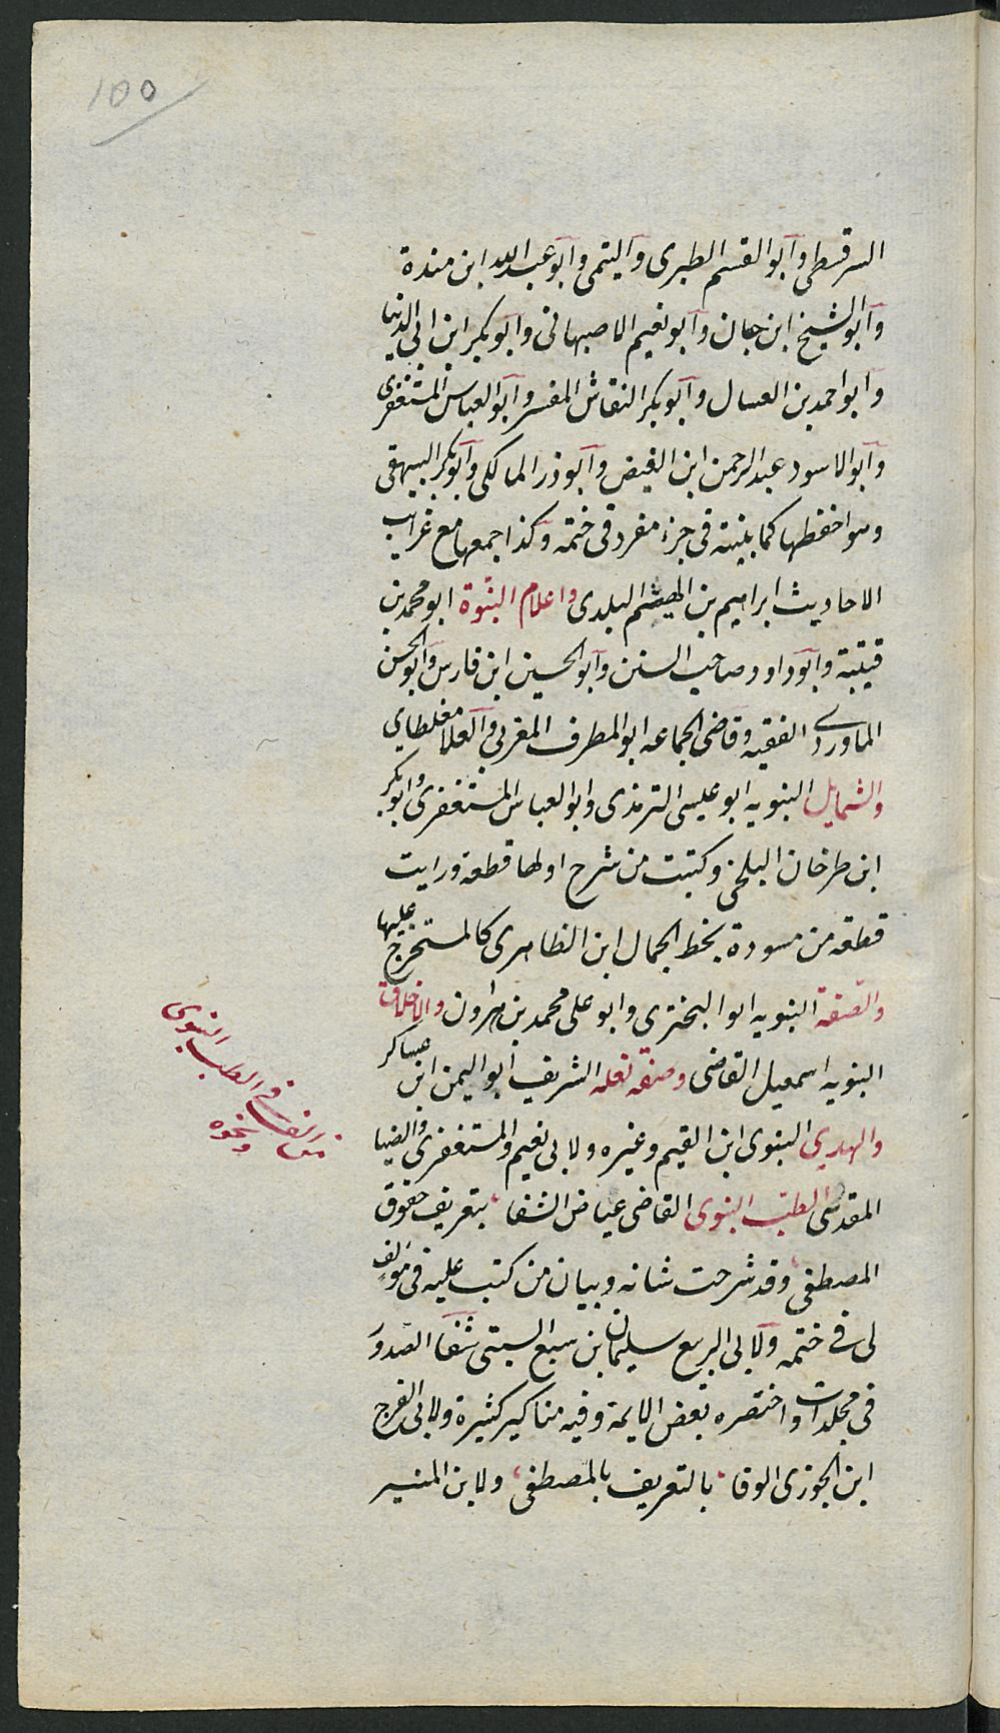 100
السرقسطي وابو القسم الطبرى والتيمى وابو عبد الله ابن مندة
وابو الشيخ ابن حبان وابو نعيم الاصبهانى وابو بكر ابن ابى الدنيا
وابو احمد بن العسال وابو بكر النقاش المفسر وابو العباس المستغفرى
وابو الاسود عبد الرحمن ابن الفيض وابو ذر المالكى وابو بكر البيهقى
وهو احفظها كما بينته فى جزء مفرد فى ختمه وكذا جمعها مع غرايب
الاحاديث ابراهيم بن الهيثم البلدى واعلام النبوة ابو محمد بن
قيتبة وابو داود صاحب السنن وابو الحسين ابن فارس وابو الحسن
الماوردے الفقيه وقاضى الجماعه ابو المطرف المغربى والعلا مغلطاي
والشمايل النبويه ابو عيسى الترمذى وابو العباس المستغفرى وابو بكر
ابن طرخان البلخى وكتبت من شرح اولها قطعة ورايت
قطعه من مسودة بخط الجمال ابن الظاهرى كالمستخرج عليها
والصفة النبويه ابو البخترى وابو على محمد بن هارون والاخلاق
النبويه اسمعيل القاضى وصفه نعله الشريف ابو اليمن ابن عساكر
والهدي النبوى ابن القيم وغيره ولابى نعيم والمستغفرى والضيا
المقدسى الطب النبوى القاضى عياض الشفا بتعريف حقوق
المصطفى وقد شرحت شانه وبيان من كتب عليه فى مولف
لى فے ختمه ولابى الربيع سليمان بن سبع السبتى شفا الصدور
فى مجلدات واختصره بعض الايمة وفيه مناكير كثيرة ولابى الفرج
ابن الجوزى الوفا بالتعريف بالمصطفى ولابن المنير
من الف فے الطب النبوى
ونحوه